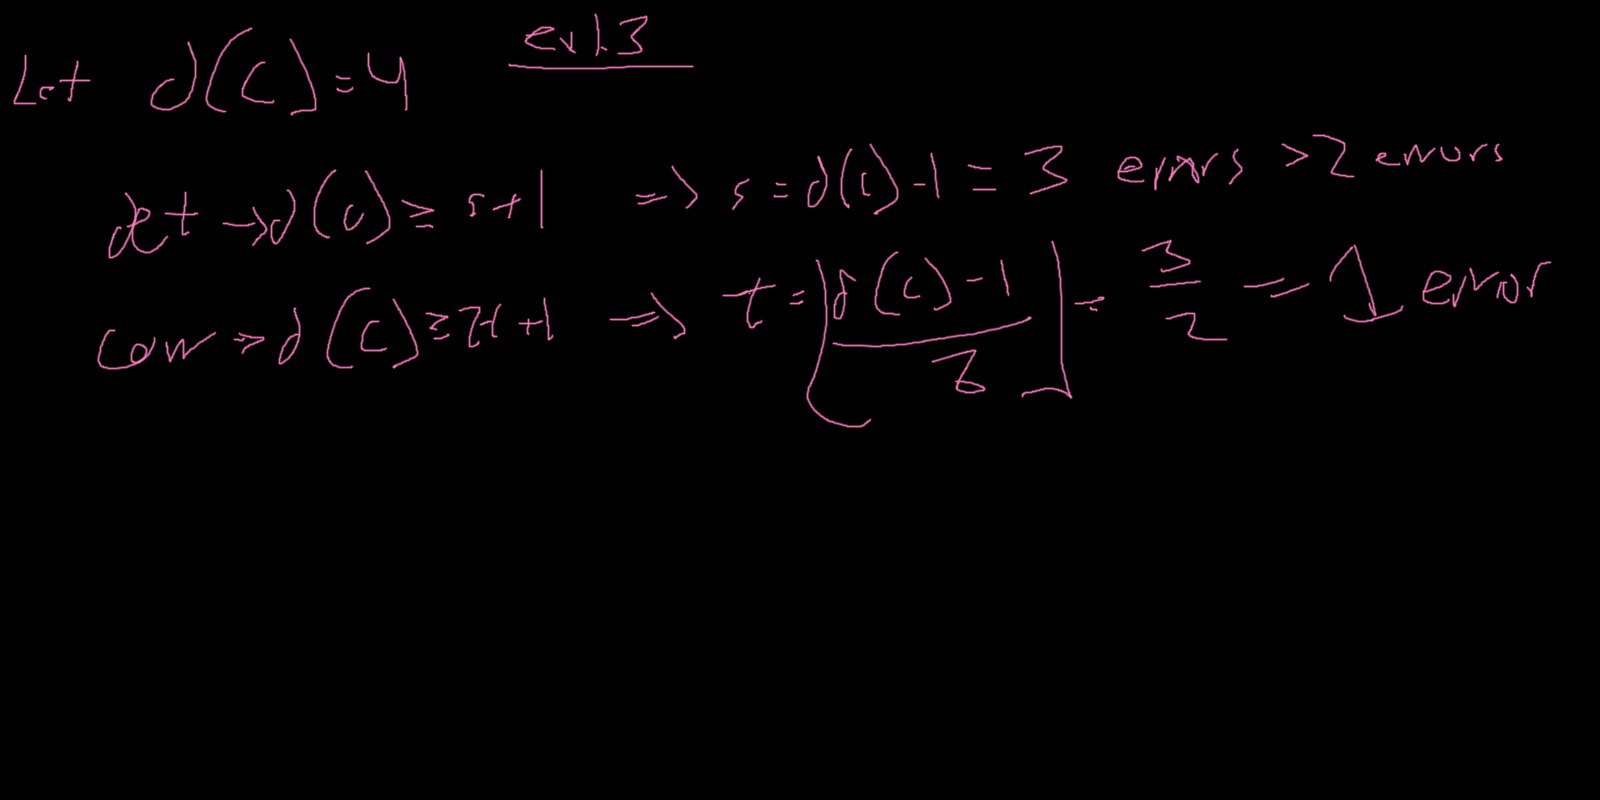 ex 1.3
Let d(C) = 4
det → d(C) ≥ s+1 ⇒ s = d(C) - 1 = 3 errors > 2 errors
corr → d(C) ≥ 2t + 1 ⇒ t = ⌊(d(C) - 1)/2⌋ = 3/2 = 1 error